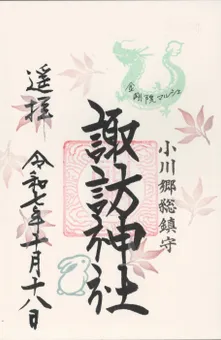 金剛院マルシェ
小川郷総鎮守
諏訪神社
遥拝
令和七年十一月十八日